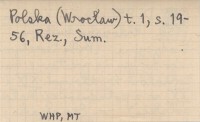 Polska (Wrocław) t. 1, s. 19-
56, Rez., Sum.
WHP, MT